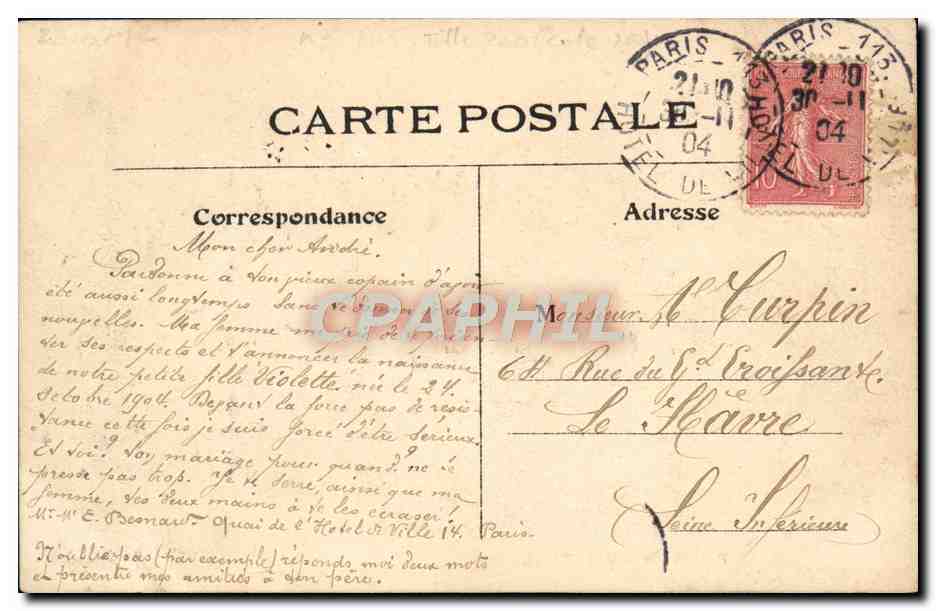 PARIS - 113
21 10
30 -11
04
HOTEL DE VILLE
PARIS - 113
21 10
30 -11
04
10
CARTE POSTALE
Correspondance
Adresse
Mon cher André.
Pardonne à ton vieux copain d'avoir
été aussi longtemps sans te donner de ses
nouvelles. Ma femme me de te présen
ter ses respects et t'annoncer la naissance
de notre petite fille Violette née le 24
Octobre 1904. Devant la force pas de résis-
tance cette fois je suis forcé d'être sérieux.
Et toi? ton mariage pour quand? ne te
presse pas trop. Je te serre, ainsi que ma
femme, tes deux mains à te les écraser!
Mr. Me E. Besnard. Quai de l'Hotel de Ville 14. Paris.
N'oublie pas (par exemple) réponds moi deux mots
et présente mes amitiés à ton père.
Monsieur A. Turpin
64 Rue du Gd Croissant.
Le Havre
Seine Inférieure
CPAPHIL